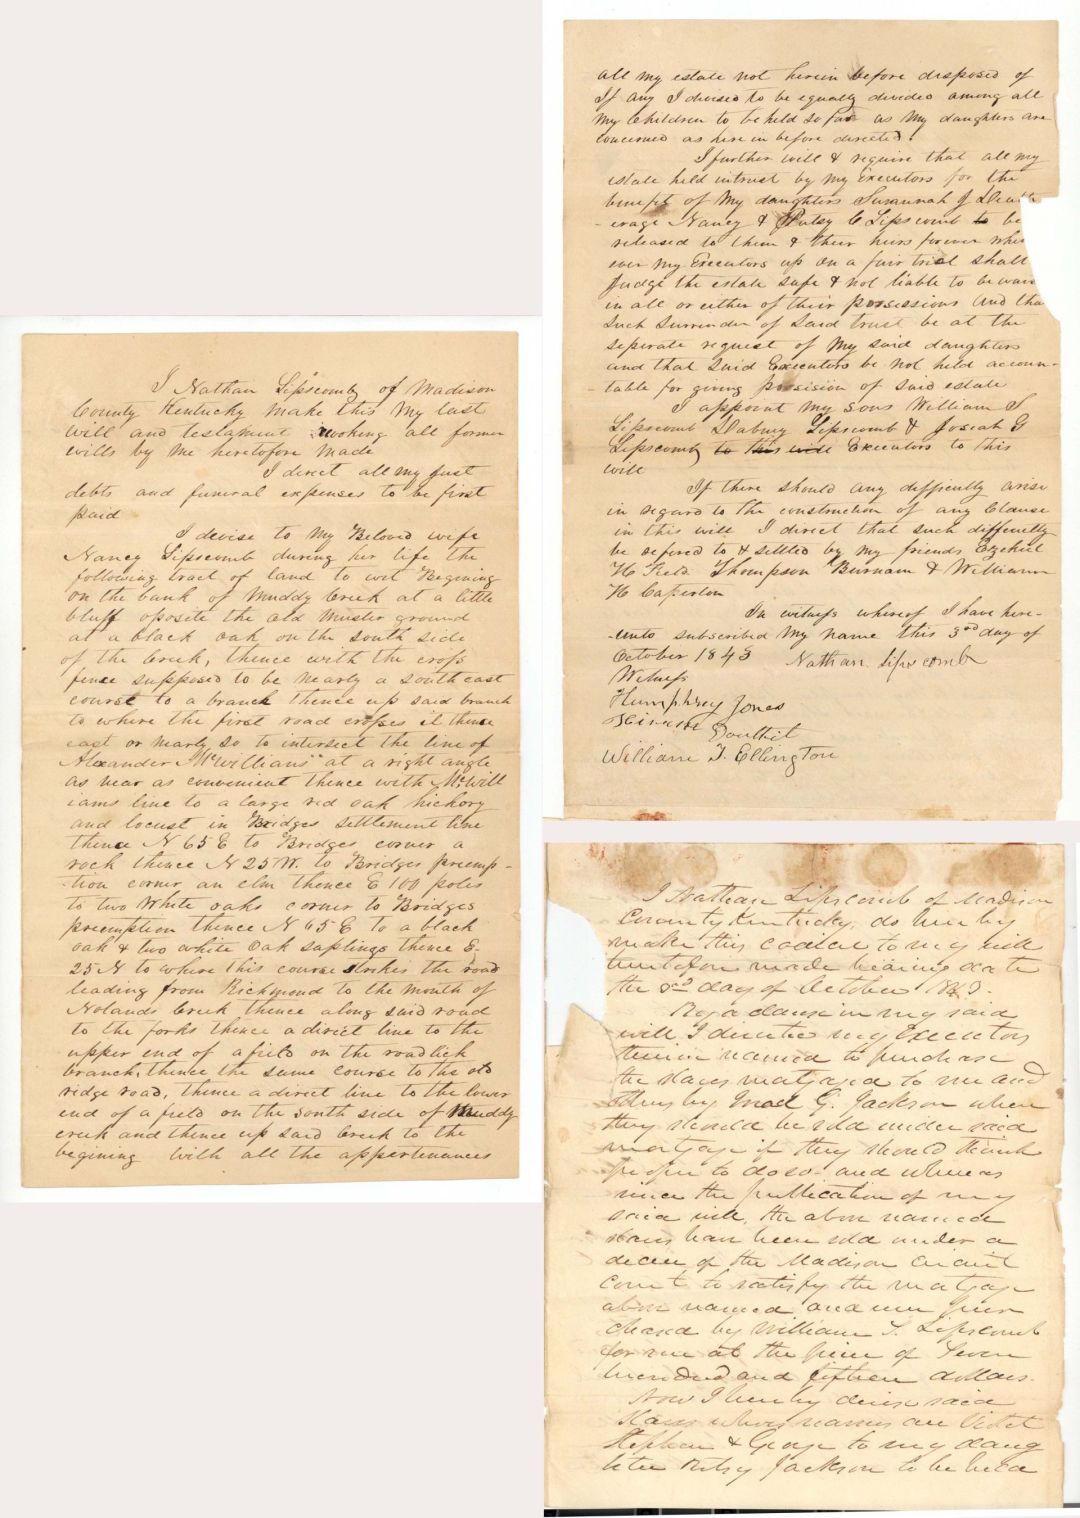 I Nathan Lipscomb of Madison
County Kentucky make this my last
will and testament revoking all former
wills by me heretofore made
I direct all my just
debts and funeral expenses to be first
paid
I devise to my Beloved wife
Nancy Lipscomb during her life the
following tract of land to wit Begining
on the bank of Muddy Creek at a little
bluff oposite the old muster ground
at a black oak on the south side
of the Creek, thence with the cross
fence supposed to be nearly a southeast
course to a branch thence up said branch
to where the first road crosses it thence
east or nearly so to intersect the line of
Alexander McWillians at a right angle
as near as convenient thence with McWill
iams line to a large red oak hickory
and locust in Bridges settlement line
thence N 65 E to Bridges corner a
rock thence N 25 W. to Bridges preemp-
-tion corner an elm thence E 100 poles
to two White oaks corner to Bridges
preemption thence N 65 E to a black
oak & two white Oak saplings thence E.
25 N to where this course strikes the road
leading from Richmond to the mouth of
Nolands Creek thence along said road
to the forks thence a direct line to the
upper end of a field on the road lick
branch, thence the same course to the old
ridge road, thence a direct line to the lower
end of a field on the south side of Muddy
creek and thence up said Creek to the
begining with all the appertenances
all my estate not herein before disposed of
If any I devise to be equally devided among all
my children to be held so far as my daughters are
concerned as here in before directed.
I further will & require that all my
estate held intrust by my Executors for the
benefit of my daughters Susannah J Death
-erage Nancy & Patsy C Lipscomb to be
released to them & their heirs forever when
ever my Executors up on a fair trial shall
judge the estate safe & not liable to be
in all or either of their possessions and tha
such surrender of said trust be at the
seperate request of my said daughters
and that said Executors be not held accoun-
-table for giving possision of said estate
I appoint my sons William S
Lipscomb Dabney Lipscomb & Josiah G
Lipscomb to this will Executors to this
will
If there should any difficulty arise
in regard to the construction of any Clause
in this will I direct that such difficulty
be refered to & settled by my friends Ezekiel
H Field Thompson Burnam & William
H Caperton
In witness whereof I have here-
-unto subscribed my name this 3rd day of
October 1843 Nathan Lipscomb
Witness
Humphrey Jones
Douthit
William T. Ellington
I Nathan Lipscomb of Madison
County Kentucky do hereby
make this codicil to my will
heretofore made bearing date
the 3rd day of October 1843.
By a clause in my said
will I directed my Executors
therein named to purchase
the slaves mortgaged to me and
others by G. Jackson when
they should be sold under said
mortgage if they should think
proper to do so and whereas
since the publication of my
said will, the above named
slaves have been sold under a
decree of the Madison Circuit
Court to satisfy the mortgage
above named and were pur
chased by William S. Lipscomb
for me at the price of Seven
hundred and fifteen dollars.
Now I hereby devise said
slaves whose names are
Stephen & George to my daug
hter Jackson to be held